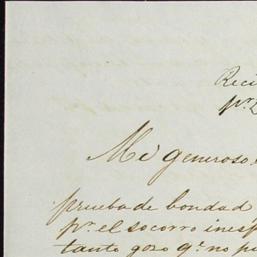 Reci
pr.
Mi generoso
prueba de bondad
pr. el socorro inesp
tanto gozo qe. no p